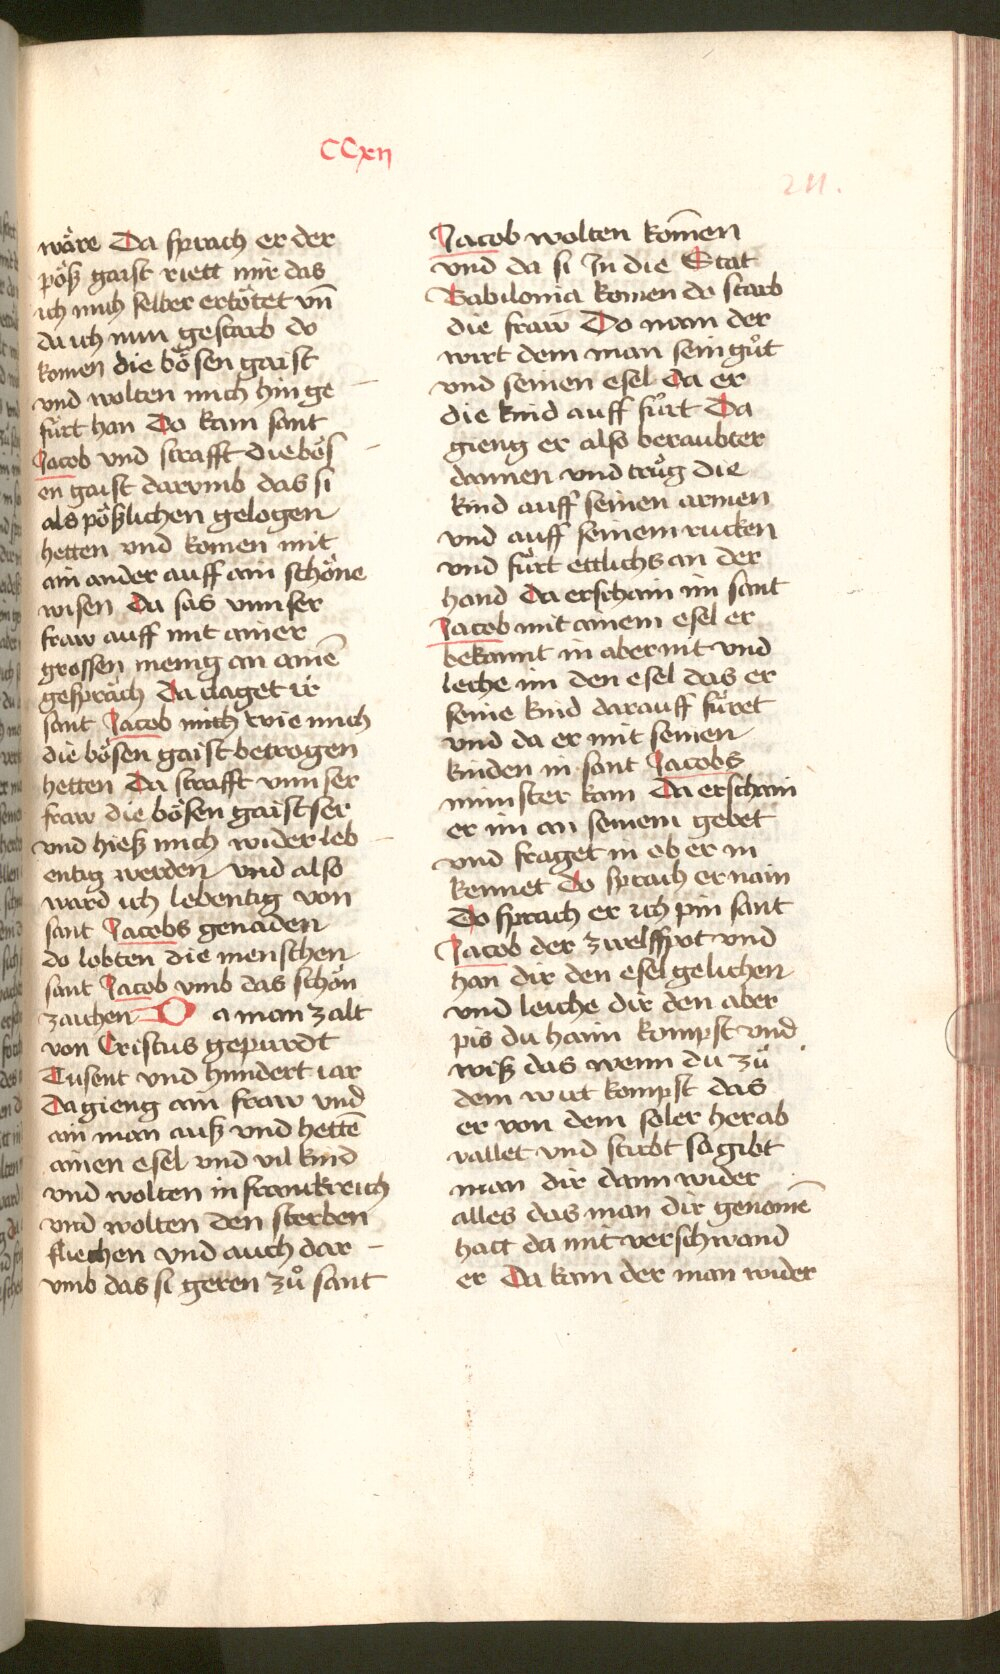 CCxii
211.
wäre Da sprach er der
pöß gaist riett mir das
ich mich selber ertötet vn̄
da ich nun gestarb do
komen die bösen gaist
vnd wolten mich hin ge
fürt han Do kam sant
Jacob vnd strafft die bös
en gaist darvmb das si
als pößlichen gelogen
hetten vnd komen mit
ain ander auff ain schöne
wisen Da sas vnnser
fraw auff mit ainer
grossen menig an ainē
gespräch Da claget ir
sant Jacob mich wie mich
die bösen gaist betrogen
hetten Da strafft vnnser
fraw die bösen gaistser
vnd hieß mich wider leb
entig werden vnd also
ward ich lebentig von
sant Jacobs genaden
do lobten die menschen
sant Jacob vmb das schön
zaichen Da man zalt
von Cristus gepurdt
Tusent vnd hundert iar
Da gieng ain fraw vnd
ain man auß vnd hettē
ainen esel vnd vil kind
vnd wolten in franckreich
vnd wolten den sterben
fliechen vnd auch dar
vmb das si geren zů sant
Jacob wolten kom̄en
vnd da si In die Stat
Babilonia komen do starb
die fraw Do nam der
wirt dem man sein gůt
vnd seinen esel da er
die kind auff fůrt Da
gieng er also beraubter
dannen vnd trůg die
kind auff seinen armen
vnd auff seinem rucken
vnd fůrt ettlichs an der
hand Da erschain im sant
Jacob mit ainem esel er
bekannt in aber nit vnd
leche im den esel das er
seine kind darauff füret
vnd da er mit seinen
kinden in sant Jacobs
minster kam Da erschain
er im an seinem gebet
vnd fraget in ob er in
kennet Do sprach er nain
Do sprach er ich pin sant
Jacob der zwelffpot vnd
han dir den esel gelichen
vnd leiche dir den aber
pis du haim kompst vnd
wiß das wenn du zů
dem wirt kompst das
er von dem soler herab
vallet vnd stirbt so gibt
man dir dann wider
alles das man dir genomē
hatt da mit verschwand
er Da kam der man wider